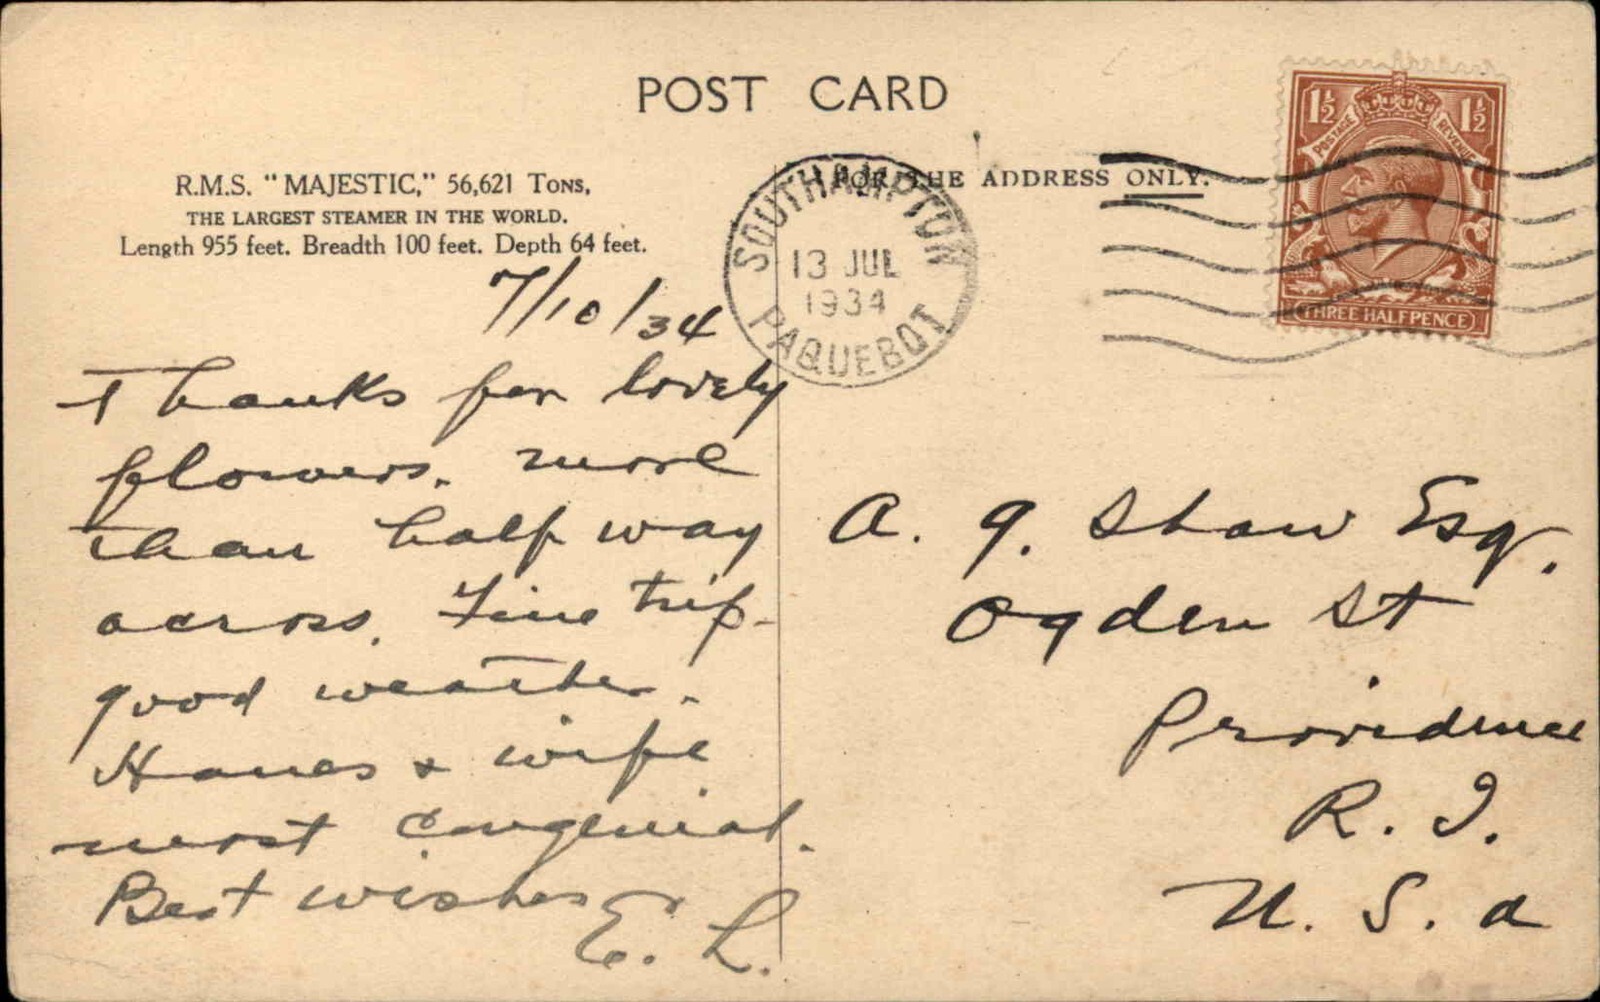 POST CARD
R.M.S. "MAJESTIC," 56,621 TONS,
THE LARGEST STEAMER IN THE WORLD.
Length 955 feet. Breadth 100 feet. Depth 64 feet.
FOR THE ADDRESS ONLY.
SOUTHAMPTON
13 JUL
1934
PAQUEBOT
1½ 1½
POSTAGE REVENUE
THREE HALFPENCE
7/10/34
Thanks for lovely
flowers. more
than half way
across. Fine trip -
good weather.
& wife
most congenial.
Best wishes
E. L.
A. G. Shaw Esq.
Ogden St
Providence
R. I.
U. S. A